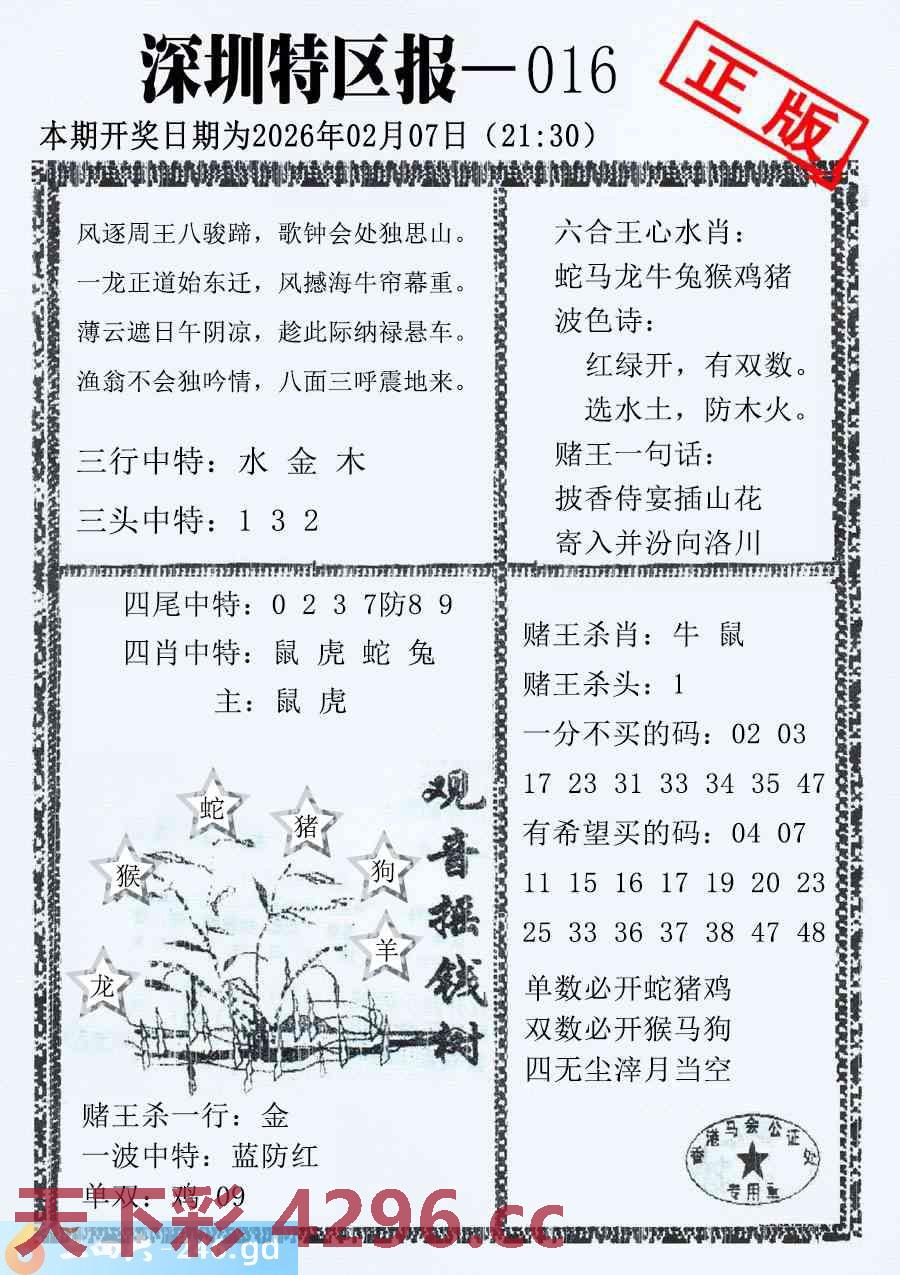 深圳特区报—016
正版
本期开奖日期为2026年02月07日（21:30）
风逐周王八骏蹄，歌钟会处独思山。
一龙正道始东迁，风撼海牛帘幕重。
薄云遮日午阴凉，趁此际纳禄悬车。
渔翁不会独吟情，八面三呼震地来。
三行中特：水 金 木
三头中特：1 3 2
六合王心水肖：
蛇马龙牛兔猴鸡猪
波色诗：
红绿开，有双数。
选水土，防木火。
赌王一句话：
披香侍宴插山花
寄入并汾向洛川
四尾中特：0 2 3 7防8 9
四肖中特：鼠 虎 蛇 兔
主：鼠 虎
观音摇钱树
蛇
猪
猴
狗
羊
龙
赌王杀一行：金
一波中特：蓝防红
单双：鸡 09
赌王杀肖：牛 鼠
赌王杀头：1
一分不买的码：02 03
17 23 31 33 34 35 47
有希望买的码：04 07
11 15 16 17 19 20 23
25 33 36 37 38 47 48
单数必开蛇猪鸡
双数必开猴马狗
四无尘滓月当空
香港马会公证处
专用章
天下彩 4296.cc